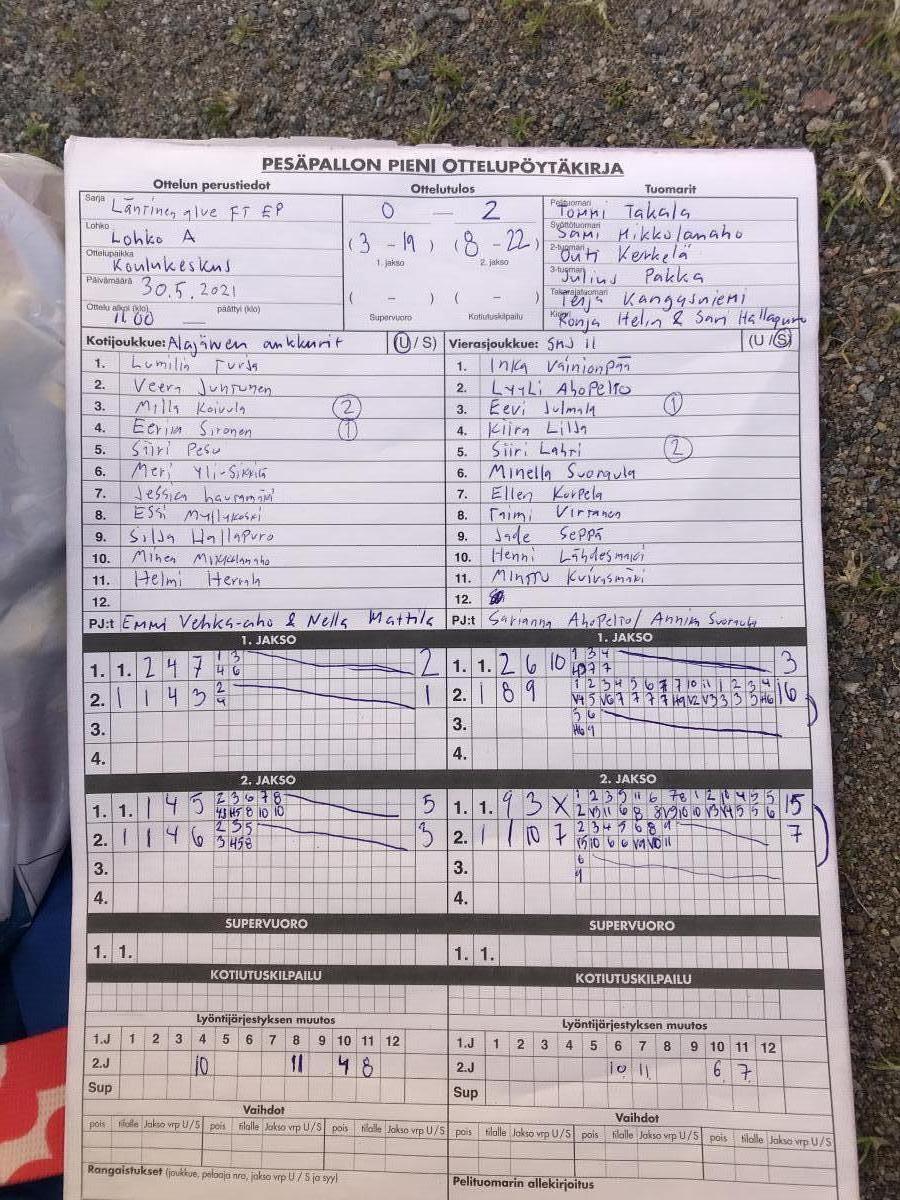 PESÄPALLON PIENI OTTELUPÖYTÄKIRJA
Ottelun perustiedot
Sarja Läntinen alue FT EP
Lohko Lohko A
Ottelupaikka Koulukeskus
Päivämäärä 30.5.2021
Ottelu alkoi (klo) 11.00 päättyi (klo) —
Ottelutulos
0 — 2
(3 - 19) (8 - 22)
1. jakso 2. jakso
( - ) ( - )
Supervuoro Kotiutuskilpailu
Tuomarit
Pelituomari Tommi Takala
Syöttötuomari Sami Mikkolanaho
2-tuomari Outi Kerkelä
3-tuomari Julius Pakka
Takarajatuomari Terja Kangasniemi
Kirjuri Ronja Helin & Sari Hallapuro
Kotijoukkue: Alajärven ankkurit (U / S)
1. Lumilia Turja
2. Veera Juntunen
3. Milla Koivula 2
4. Eerika Sironen 1
5. Siiri Pesu
6. Meri Yli-Sikkilä
7. Jessica
8. Essi Myllykoski
9. Silja Hallapuro
10. Minea Mikkolanaho
11. Helmi
12.
PJ:t Emmi Vehka-aho & Nella Mattila
Vierasjoukkue: SMJ II (U / S)
1. Inka Vainionpää
2. Lyyli Ahopelto
3. Eevi Julmala 1
4. Kiira Lilja
5. Siiri Lahri 2
6. Minella Suoraula
7. Ellen Korpela
8. Taimi Virtanen
9. Jade Seppä
10. Henni Lähdesmäki
11. Minttu Kuivasmäki
12.
PJ:t Sarianna Ahopelto / Annika Suoraula
1. JAKSO
1. 1. 2 4 7 1 3 2
4 6
2. 1 1 4 3 2 1
4
3.
4.
1. JAKSO
1. 1. 2 6 10 1 3 4 3
7 7
2. 1 8 9 1 2 3 4 5 6 7 7 10 11 1 2 3 4 16
V4 5 V6 7 7 7 7 H9 V2 V3 3 3 3 H6
3. 5 6
H6 9
4.
2. JAKSO
1. 1. 1 4 5 2 3 6 7 8 5
H5 8 10 10
2. 1 1 4 6 2 3 5 3
3 H5 8
3.
4.
2. JAKSO
1. 1. 9 3 X 1 2 3 5 11 6 7 8 1 2 4 5 5 15
2. 1 1 10 7 2 3 4 5 6 8 9 7
3. 6
9
4.
SUPERVUORO
1. 1.
SUPERVUORO
1. 1.
KOTIUTUSKILPAILU
KOTIUTUSKILPAILU
Lyöntijärjestyksen muutos
1.J 1 2 3 4 5 6 7 8 9 10 11 12
2.J 10 11 4 8
Sup
Lyöntijärjestyksen muutos
1.J 1 2 3 4 5 6 7 8 9 10 11 12
2.J 10 11 6 7
Sup
Vaihdot
pois tilalle Jakso vrp U / S pois tilalle Jakso vrp U / S pois tilalle Jakso vrp U / S
Vaihdot
pois tilalle Jakso vrp U / S pois tilalle Jakso vrp U / S pois tilalle Jakso vrp U / S
Rangaistukset (joukkue, pelaaja nro, jakso vrp U / S ja syy)
Pelituomarin allekirjoitus